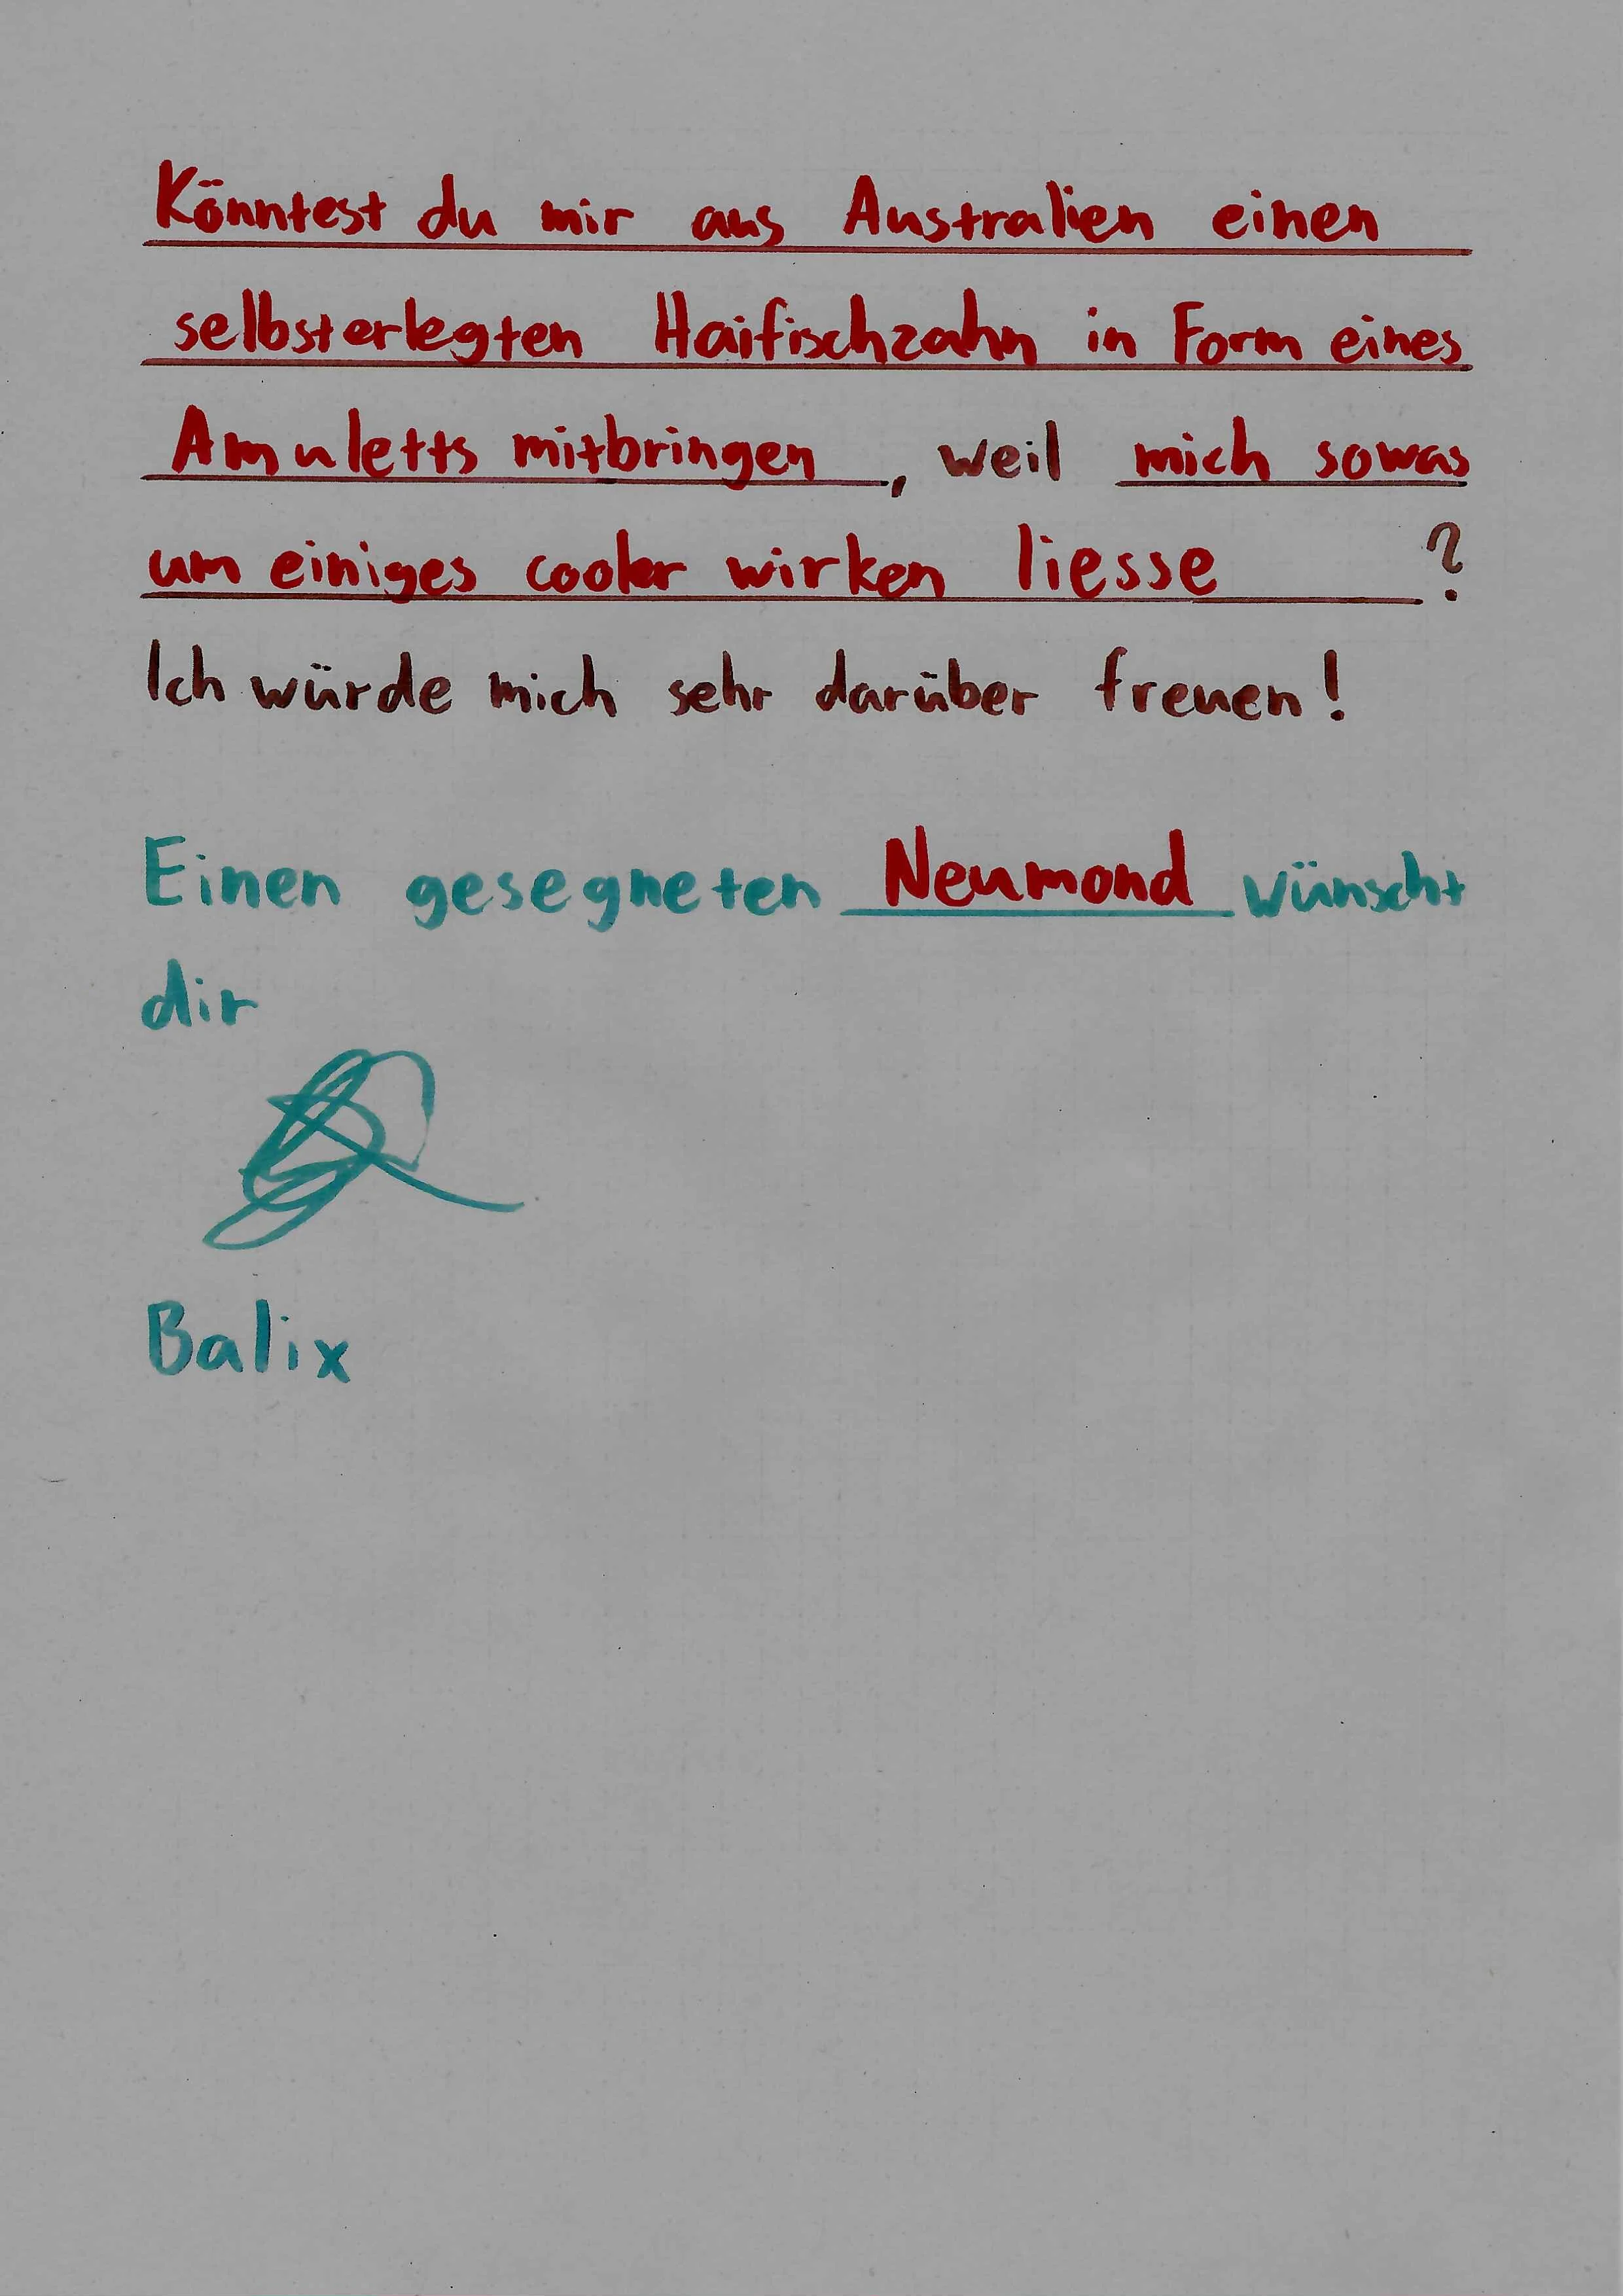 Könntest du mir aus Australien einen
selbsterlegten Haifischzahn in Form eines
Amuletts mitbringen, weil mich sowas
um einiges cooler wirken liesse ?
Ich würde mich sehr darüber freuen!
Einen gesegneten Neumond wünscht
dir
Balix